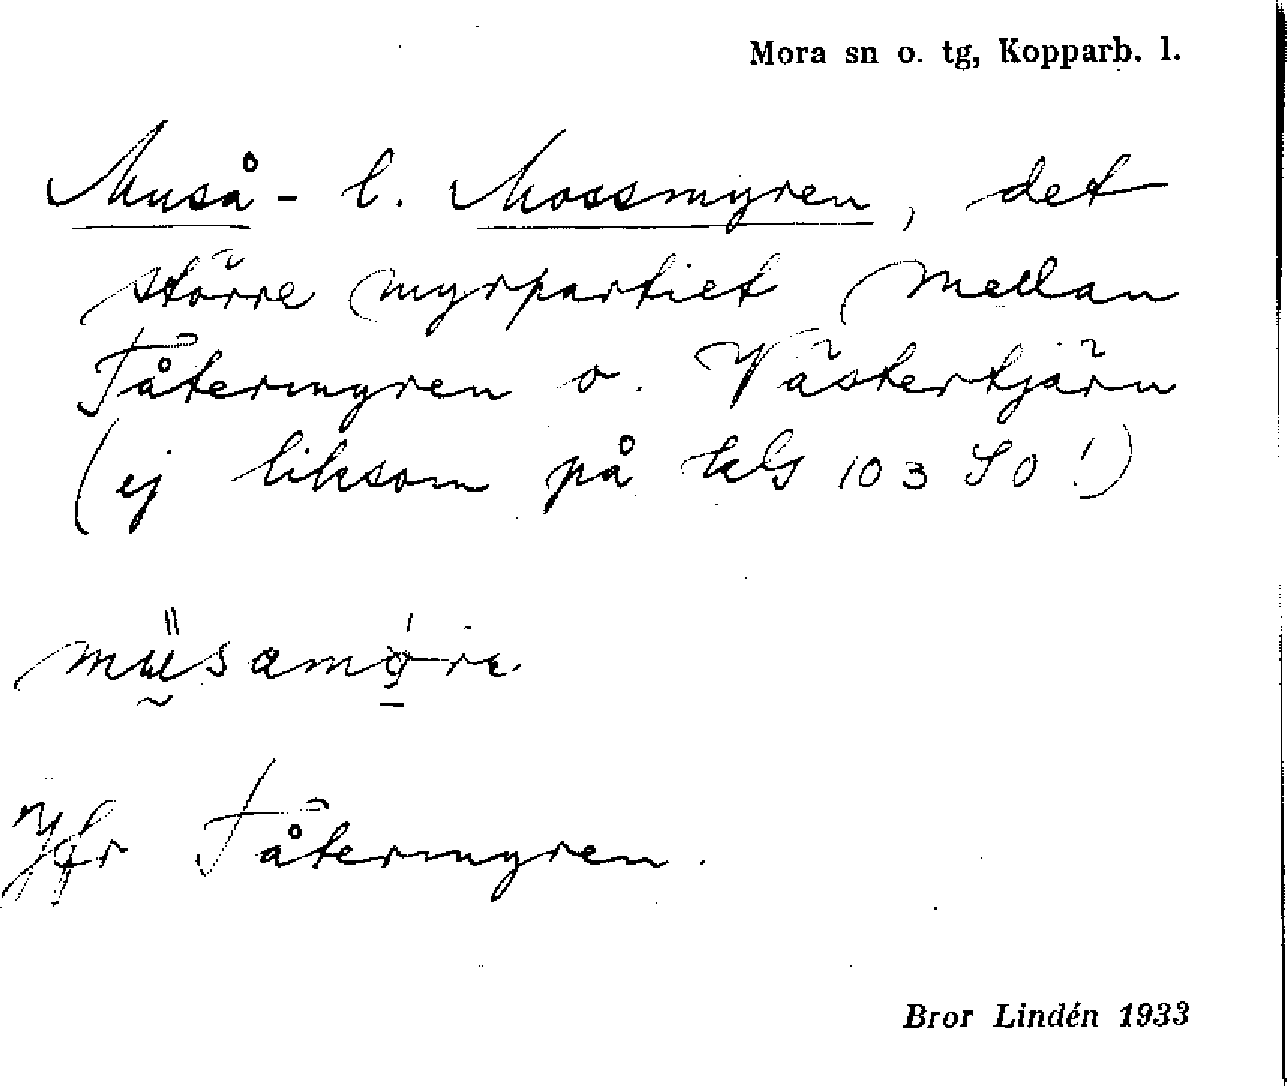 Mora sn o. tg, Kopparb. l.
Muså- l. Mossmyren, det
större myrpartiet mellan
Tåtermyren o. Västertjärn
(ej liksom på kbl 103 SO!)
Jfr Tåtermyren.
Bror Lindén 1933